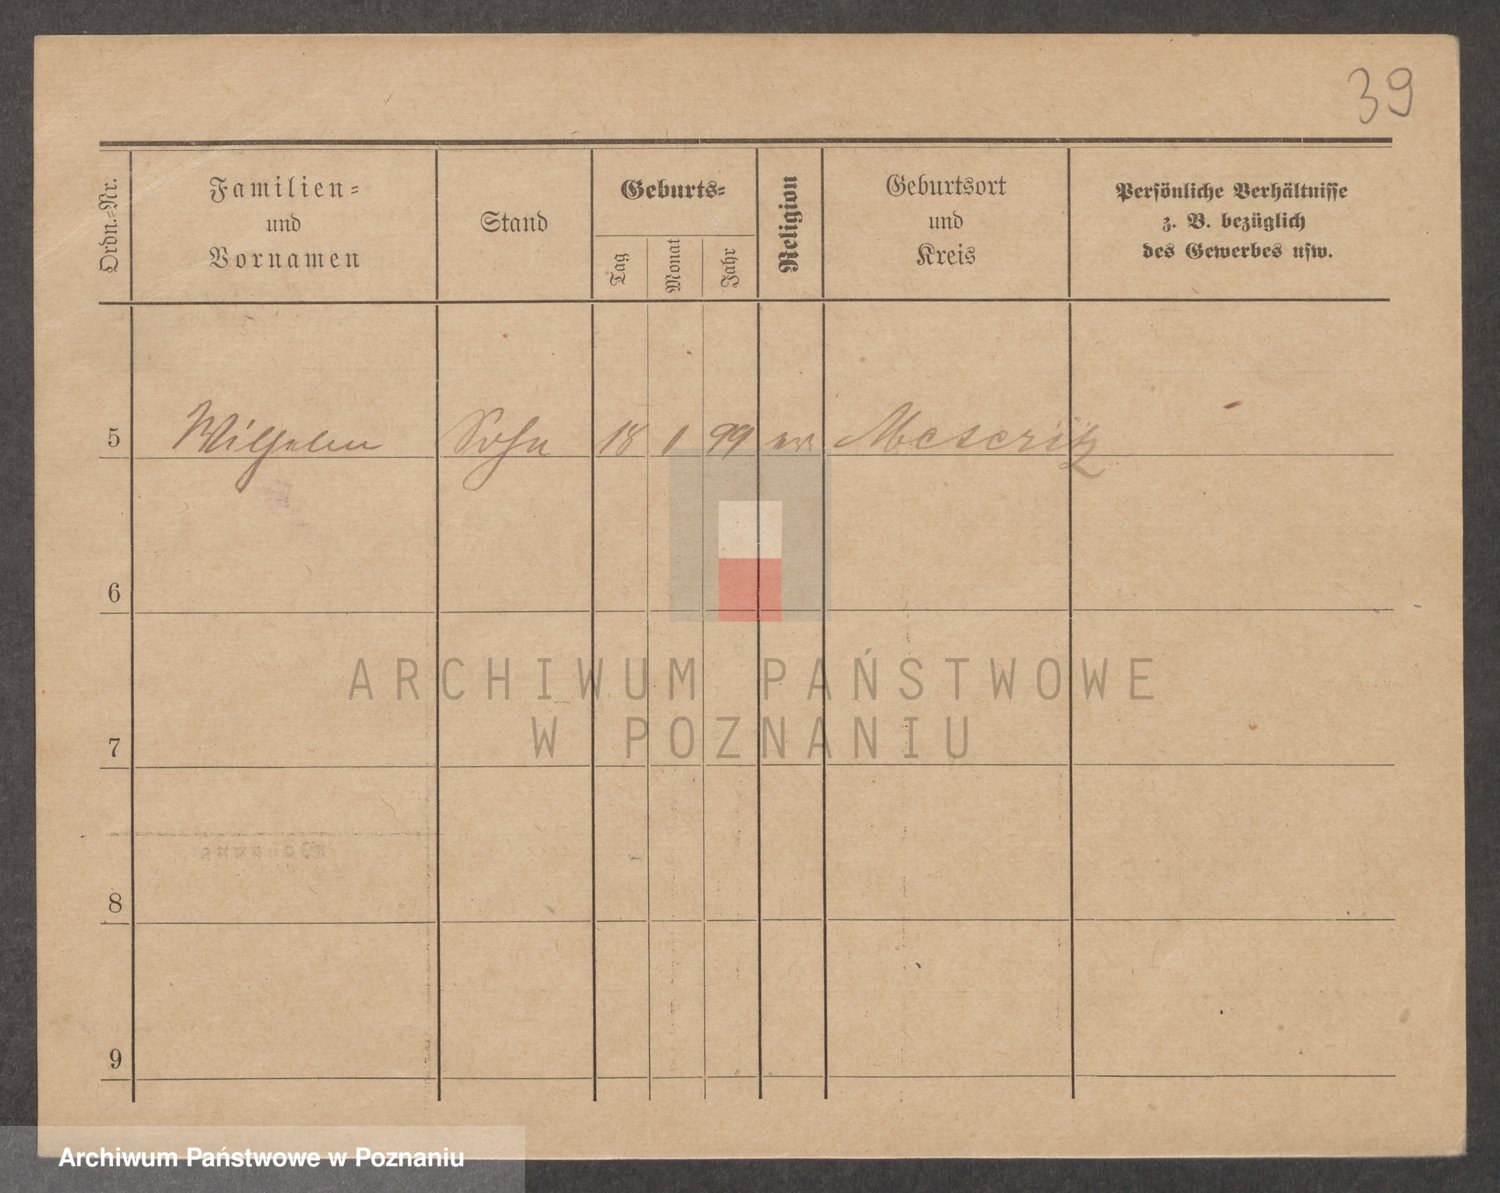 39
Ordn.-Nr.
Familien-
und
Vornamen
Stand
Geburts-
Tag
Monat
Jahr
Religion
Geburtsort
und
Kreis
Persönliche Verhältnisse
z. B. bezüglich
des Gewerbes usw.
5 Wilhelm Sohn 18 1 99 Meseritz
6
7
8
9
ARCHIWUM PAŃSTWOWE
W POZNANIU
Archiwum Państwowe w Poznaniu